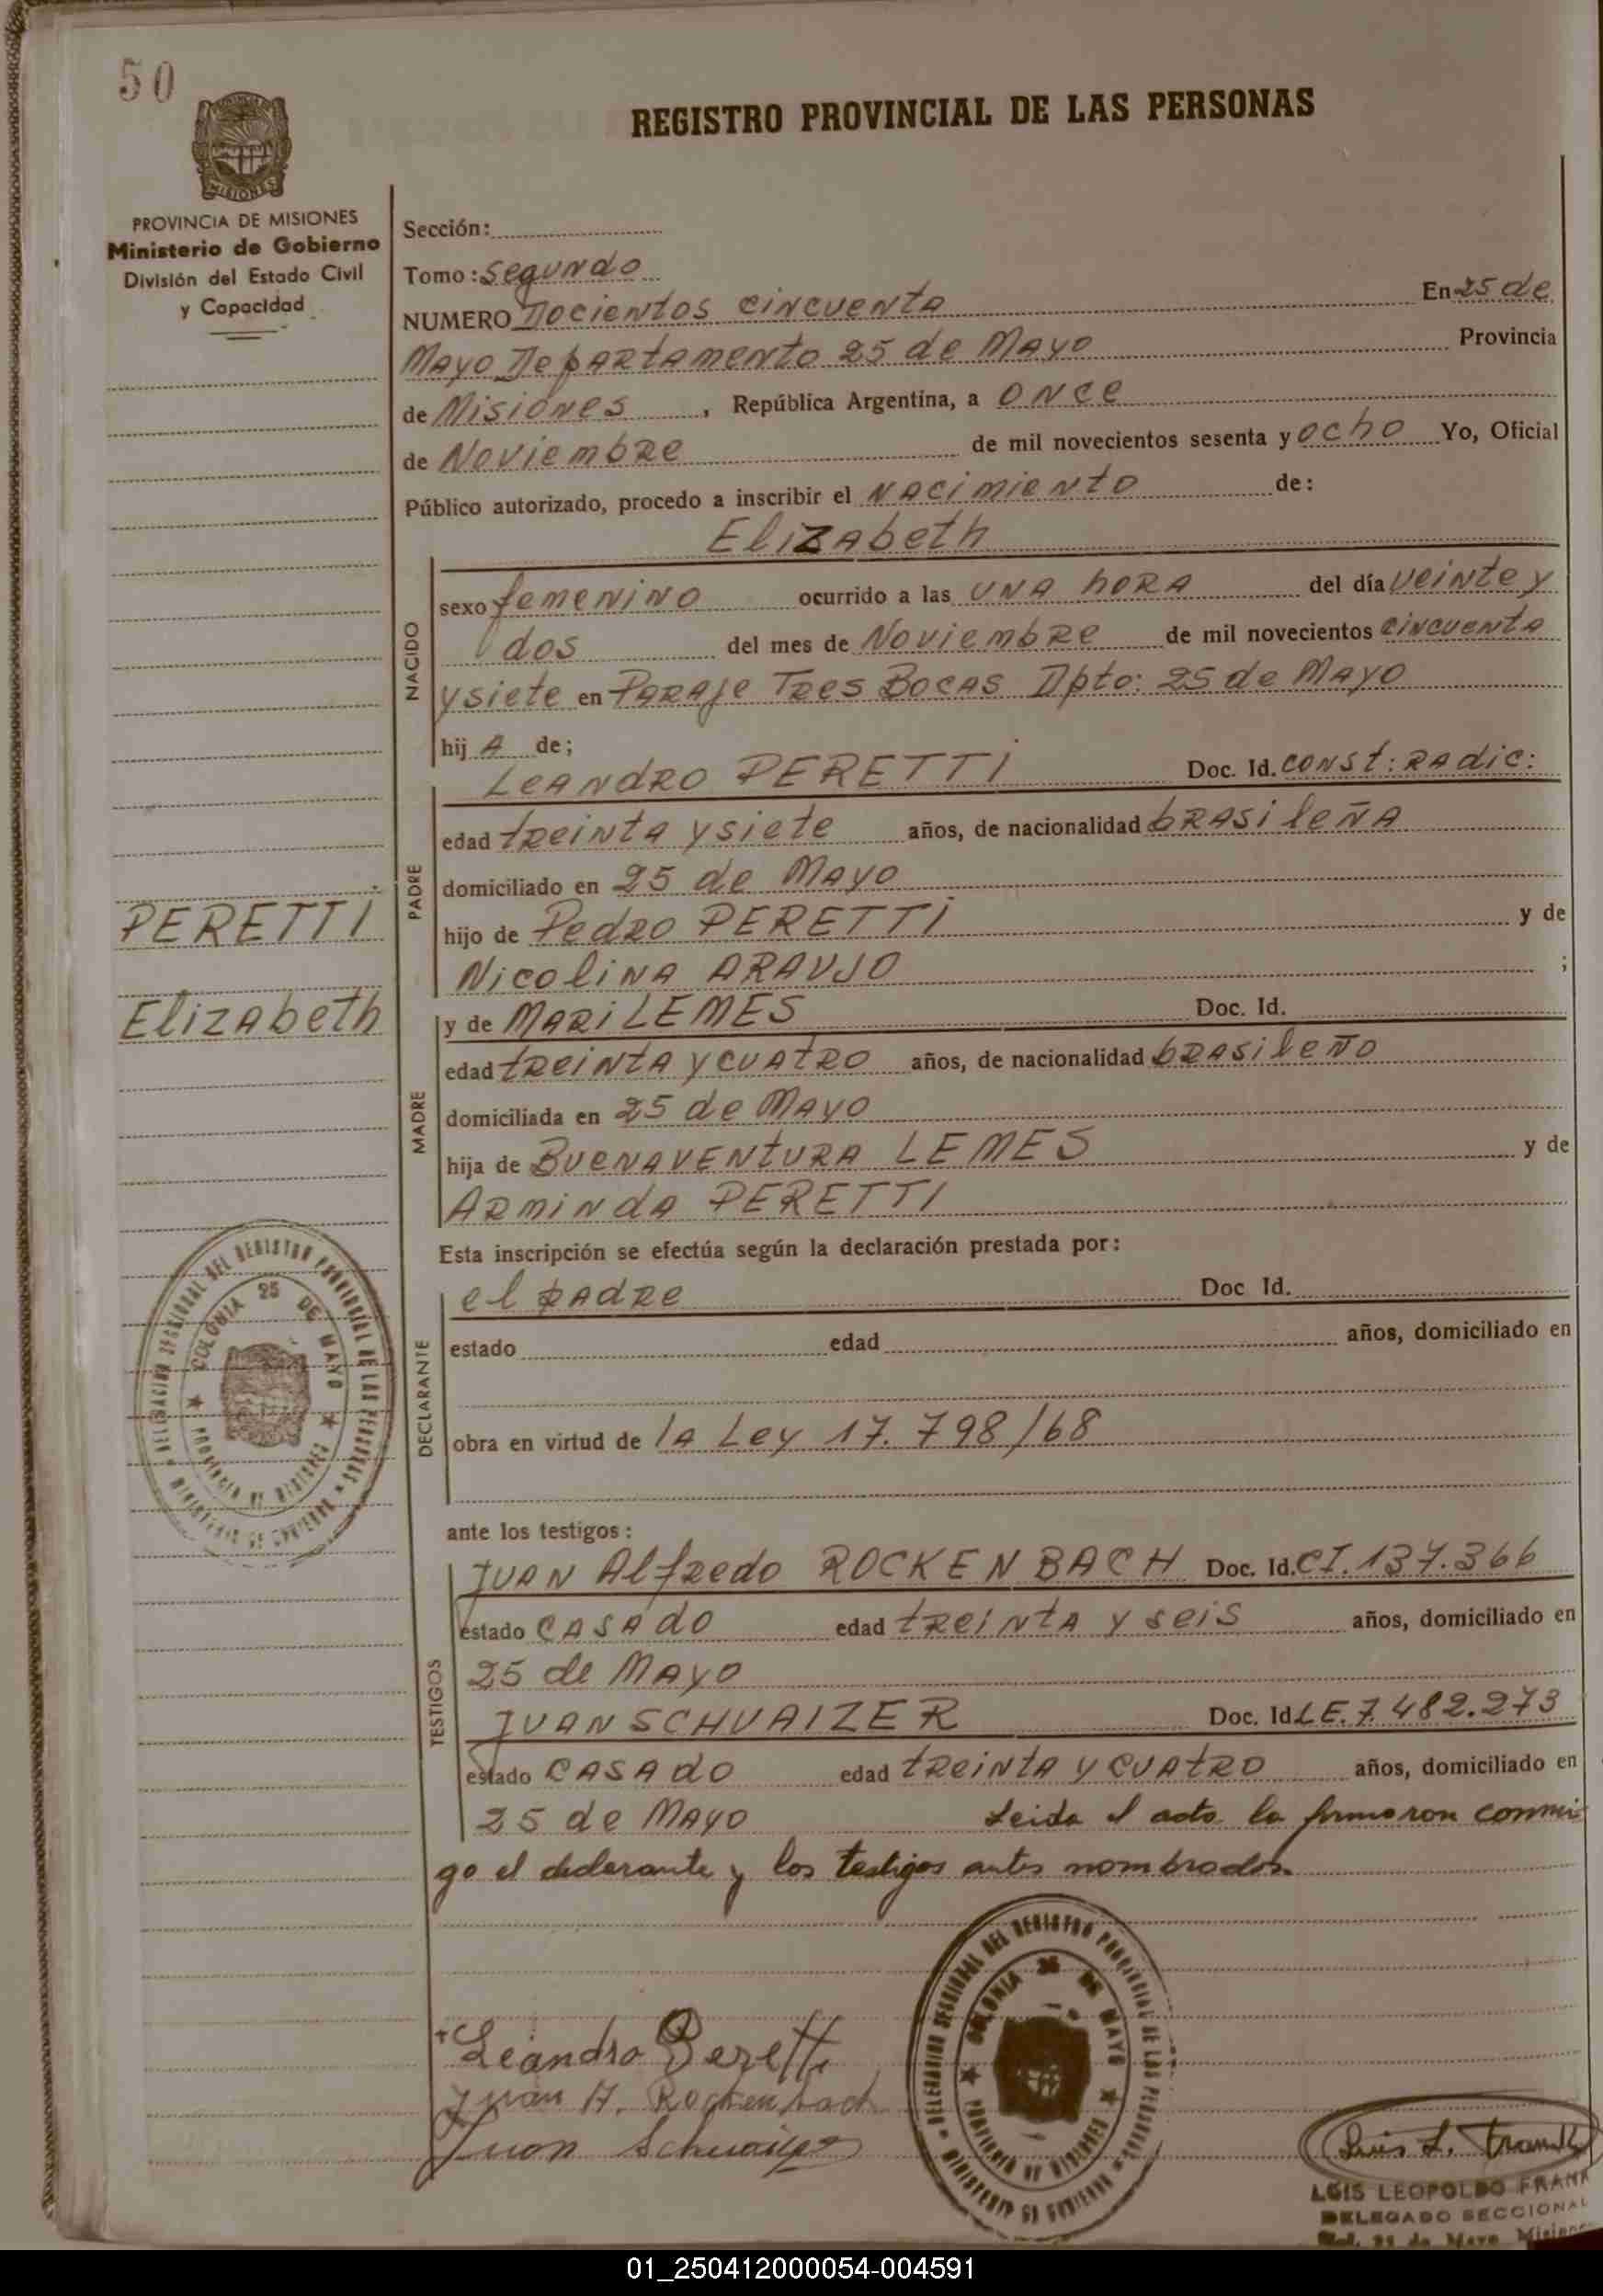 50
REGISTRO PROVINCIAL DE LAS PERSONAS
MISIONES
PROVINCIA DE MISIONES
Ministerio de Gobierno
División del Estado Civil
y Capacidad
Sección:
Tomo: Segundo
NUMERO Docientos cincuenta En 25 de
Mayo Departamento 25 de Mayo Provincia
de Misiones, República Argentina, a once
de Noviembre de mil novecientos sesenta y ocho Yo, Oficial
Público autorizado, procedo a inscribir el Nacimiento de:
Elizabeth
NACIDO
sexo femenino ocurrido a las una hora del día veinte y
dos del mes de Noviembre de mil novecientos cincuenta
y siete en Paraje Tres Bocas Dpto: 25 de Mayo
hij A de;
Leandro PERETTI Doc. Id. const: radic:
PADRE
edad treinta y siete años, de nacionalidad brasileña
domiciliado en 25 de Mayo
hijo de Pedro PERETTI y de
Nicolina ARAUJO ;
PERETTI
Elizabeth
y de MARI LEMES Doc. Id.
MADRE
edad treinta y cuatro años, de nacionalidad brasileño
domiciliada en 25 de Mayo
hija de Buenaventura LEMES y de
Arminda PERETTI
Esta inscripción se efectúa según la declaración prestada por:
el padre Doc Id.
DECLARANTE
estado edad años, domiciliado en
obra en virtud de la Ley 17.798/68
DELEGACION SECCIONAL DEL REGISTRO PROVINCIAL DE LAS PERSONAS
MINISTERIO DE GOBIERNO
COLONIA 25 DE MAYO
PROVINCIA DE MISIONES
ante los testigos:
Juan Alfredo ROCKENBACH Doc. Id. CI. 137.366
TESTIGOS
estado casado edad treinta y seis años, domiciliado en
25 de Mayo
JUAN SCHVAIZER Doc. Id LE. 7.482.273
estado casado edad treinta y cuatro años, domiciliado en
25 de Mayo Leida el acta la firmaron conmi
go el declarante y los testigos antes nombrados.
Leandro Peretti
Juan A. Rockenbach
Juan Schvaizer
DELEGACION SECCIONAL DEL REGISTRO PROVINCIAL DE LAS PERSONAS
MINISTERIO DE GOBIERNO
COLONIA 25 DE MAYO
PROVINCIA DE MISIONES
Luis L. Frank
LUIS LEOPOLDO FRANK
DELEGADO SECCIONAL
Col. 25 de Mayo Misiones
01_250412000054-004591